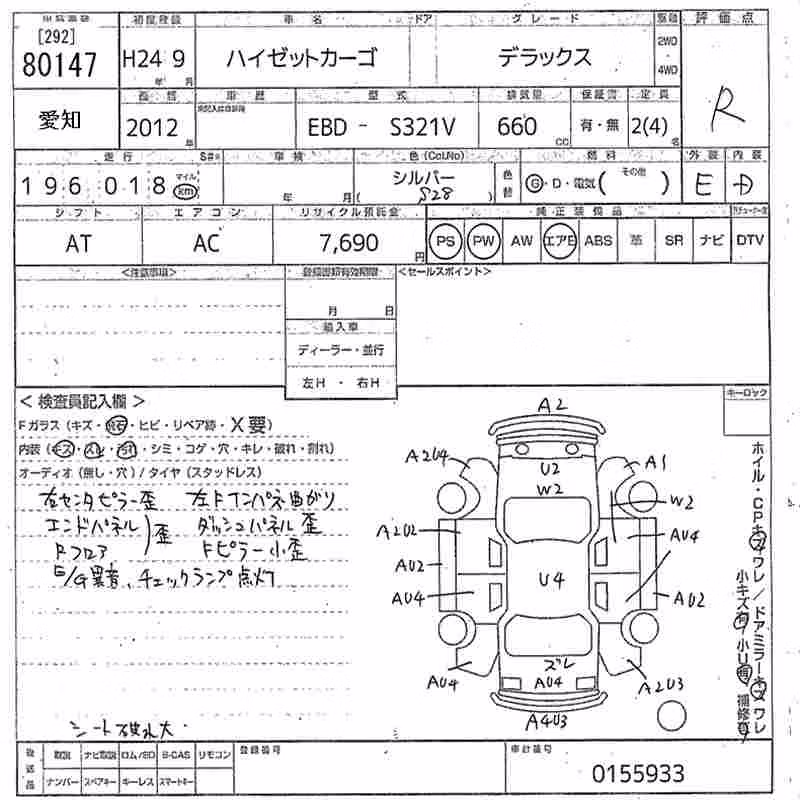 出品番号 初度登録 車名 ドア グレード 駆動 評価点
[292]
80147 H24 9 ハイゼットカーゴ デラックス 2WD 4WD R
年 月
愛知
2012 年 車歴 型式 EBD - S321V 排気量 660 CC 保証書 有・無 定員 2(4) 名
走行 S#* 車検 色(Col.No) 燃料 外装 内装
196 018 マイル km 年 月 シルバー ( S28 ) 色替 G・D・電気( その他 ) E D
シフト エアコン リサイクル預託金 純正装備品
AT AC 7,690 円 PS PW AW エアB ABS 革 SR ナビ DTV
<注意事項> <セールスポイント>
月 日
輸入車
ディーラー・並行
左H ・ 右H
キーロック
<検査員記入欄>
Fガラス (キズ・飛石・ヒビ・リペア跡・X要)
内装 (キズ・スレ・汚れ・シミ・コゲ・穴・キレ・破れ・割れ)
オーディオ (無し・穴) / タイヤ (スタッドレス)
右センタピラー歪 左Fインパネ曲がり
エンドパネル 歪 ダッシュパネル 歪
Rフロア Fピラー小歪
E/G異音、チェックランプ点灯
シート破れ大
A2
A2U4 U2 A1
W2 W2
A2U2 AU4
AU2 U4
AU4 AU2
ズレ
AU4 AU4 A2U3
A4U3
ホイル・CPキズワレ/ドアミラーキズワレ
小キズ有 小U有 補修有
後送品 取説 ナビ取説 ロム/SD B-CAS リモコン 登録番号 車台番号
ナンバー スペアキー キーレス スマートキー 0155933